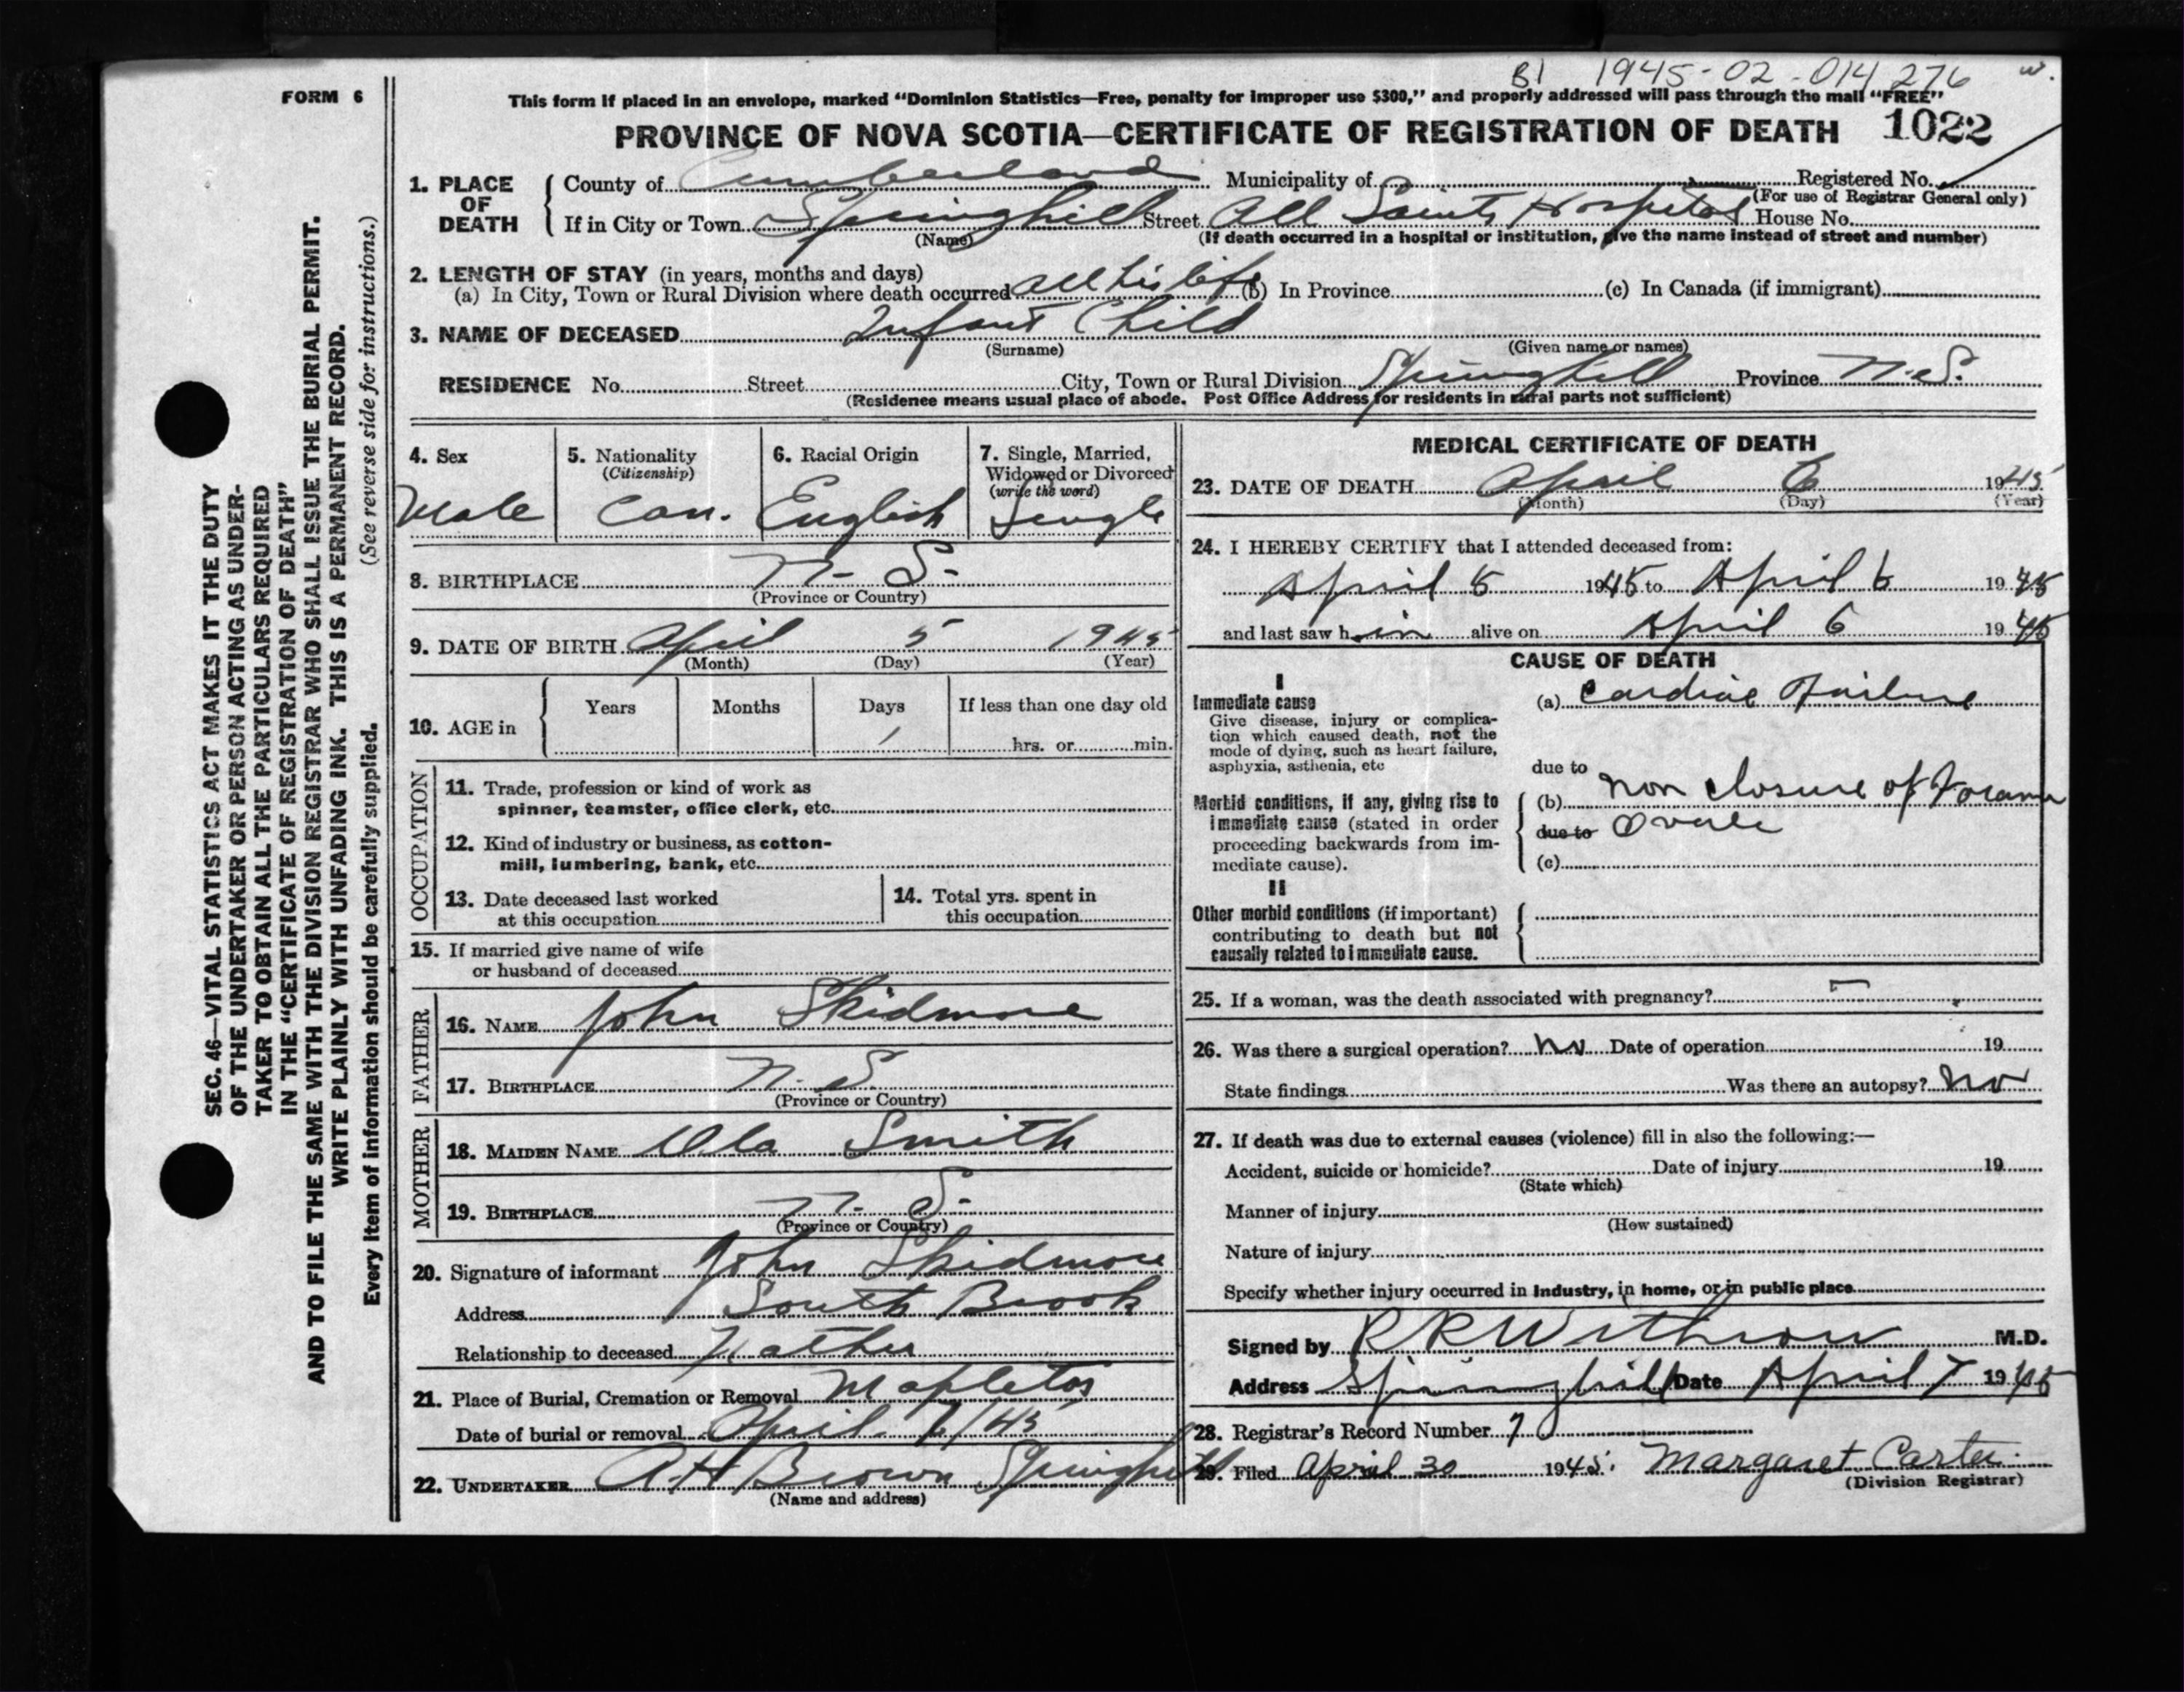 B1 1945-02-014276 w.
FORM 6
This form if placed in an envelope, marked “Dominion Statistics—Free, penalty for improper use $300,” and properly addressed will pass through the mail “FREE”
PROVINCE OF NOVA SCOTIA—CERTIFICATE OF REGISTRATION OF DEATH 1022
1. PLACE OF DEATH
County of Cumberland Municipality of Registered No.
(For use of Registrar General only)
If in City or Town Springhill Street All Saints Hospital House No.
(Name) (If death occurred in a hospital or institution, give the name instead of street and number)
2. LENGTH OF STAY (in years, months and days)
(a) In City, Town or Rural Division where death occurred all his life (b) In Province (c) In Canada (if immigrant)
3. NAME OF DECEASED Infant Child
(Surname) (Given name or names)
RESIDENCE No. Street City, Town or Rural Division Springhill Province N.S.
(Residence means usual place of abode. Post Office Address for residents in rural parts not sufficient)
4. Sex
Male
5. Nationality
(Citizenship)
Can.
6. Racial Origin
English
7. Single, Married,
Widowed or Divorced
(write the word)
Single
8. BIRTHPLACE N. S.
(Province or Country)
9. DATE OF BIRTH April 5 1945
(Month) (Day) (Year)
10. AGE in
Years Months Days If less than one day old
1 hrs. or min.
OCCUPATION
11. Trade, profession or kind of work as
spinner, teamster, office clerk, etc.
12. Kind of industry or business, as cotton-
mill, lumbering, bank, etc.
13. Date deceased last worked
at this occupation
14. Total yrs. spent in
this occupation
15. If married give name of wife
or husband of deceased
FATHER
16. NAME John Skidmore
17. BIRTHPLACE N. S.
(Province or Country)
MOTHER
18. MAIDEN NAME Ola Smith
19. BIRTHPLACE N. S.
(Province or Country)
20. Signature of informant John Skidmore
Address South Brook
Relationship to deceased Father
21. Place of Burial, Cremation or Removal Mapleton
Date of burial or removal April /45
22. UNDERTAKER A H Brown Springhill
(Name and address)
MEDICAL CERTIFICATE OF DEATH
23. DATE OF DEATH April 6 1945
(Month) (Day) (Year)
24. I HEREBY CERTIFY that I attended deceased from:
April 5 1945 to April 6 1945
and last saw him alive on April 6 1945
CAUSE OF DEATH
I
Immediate cause
Give disease, injury or complica-
tion which caused death, not the
mode of dying, such as heart failure,
asphyxia, asthenia, etc
(a) Cardiac Failure
due to
Morbid conditions, if any, giving rise to
immediate cause (stated in order
proceeding backwards from im-
mediate cause).
(b) Non closure of Foramen
due to Ovale
(c)
II
Other morbid conditions (if important)
contributing to death but not
causally related to immediate cause.
25. If a woman, was the death associated with pregnancy? —
26. Was there a surgical operation? No Date of operation 19
State findings Was there an autopsy? No
27. If death was due to external causes (violence) fill in also the following:—
Accident, suicide or homicide? Date of injury 19
(State which)
Manner of injury
(How sustained)
Nature of injury
Specify whether injury occurred in industry, in home, or in public place
Signed by R R Withrow M.D.
Address Springhill Date April 7 1945
28. Registrar's Record Number 70
29. Filed April 30 1945. Margaret Carter
(Division Registrar)
SEC. 46—VITAL STATISTICS ACT MAKES IT THE DUTY
OF THE UNDERTAKER OR PERSON ACTING AS UNDER-
TAKER TO OBTAIN ALL THE PARTICULARS REQUIRED
IN THE “CERTIFICATE OF REGISTRATION OF DEATH”
AND TO FILE THE SAME WITH THE DIVISION REGISTRAR WHO SHALL ISSUE THE BURIAL PERMIT.
WRITE PLAINLY WITH UNFADING INK. THIS IS A PERMANENT RECORD.
(See reverse side for instructions.)
Every item of information should be carefully supplied.